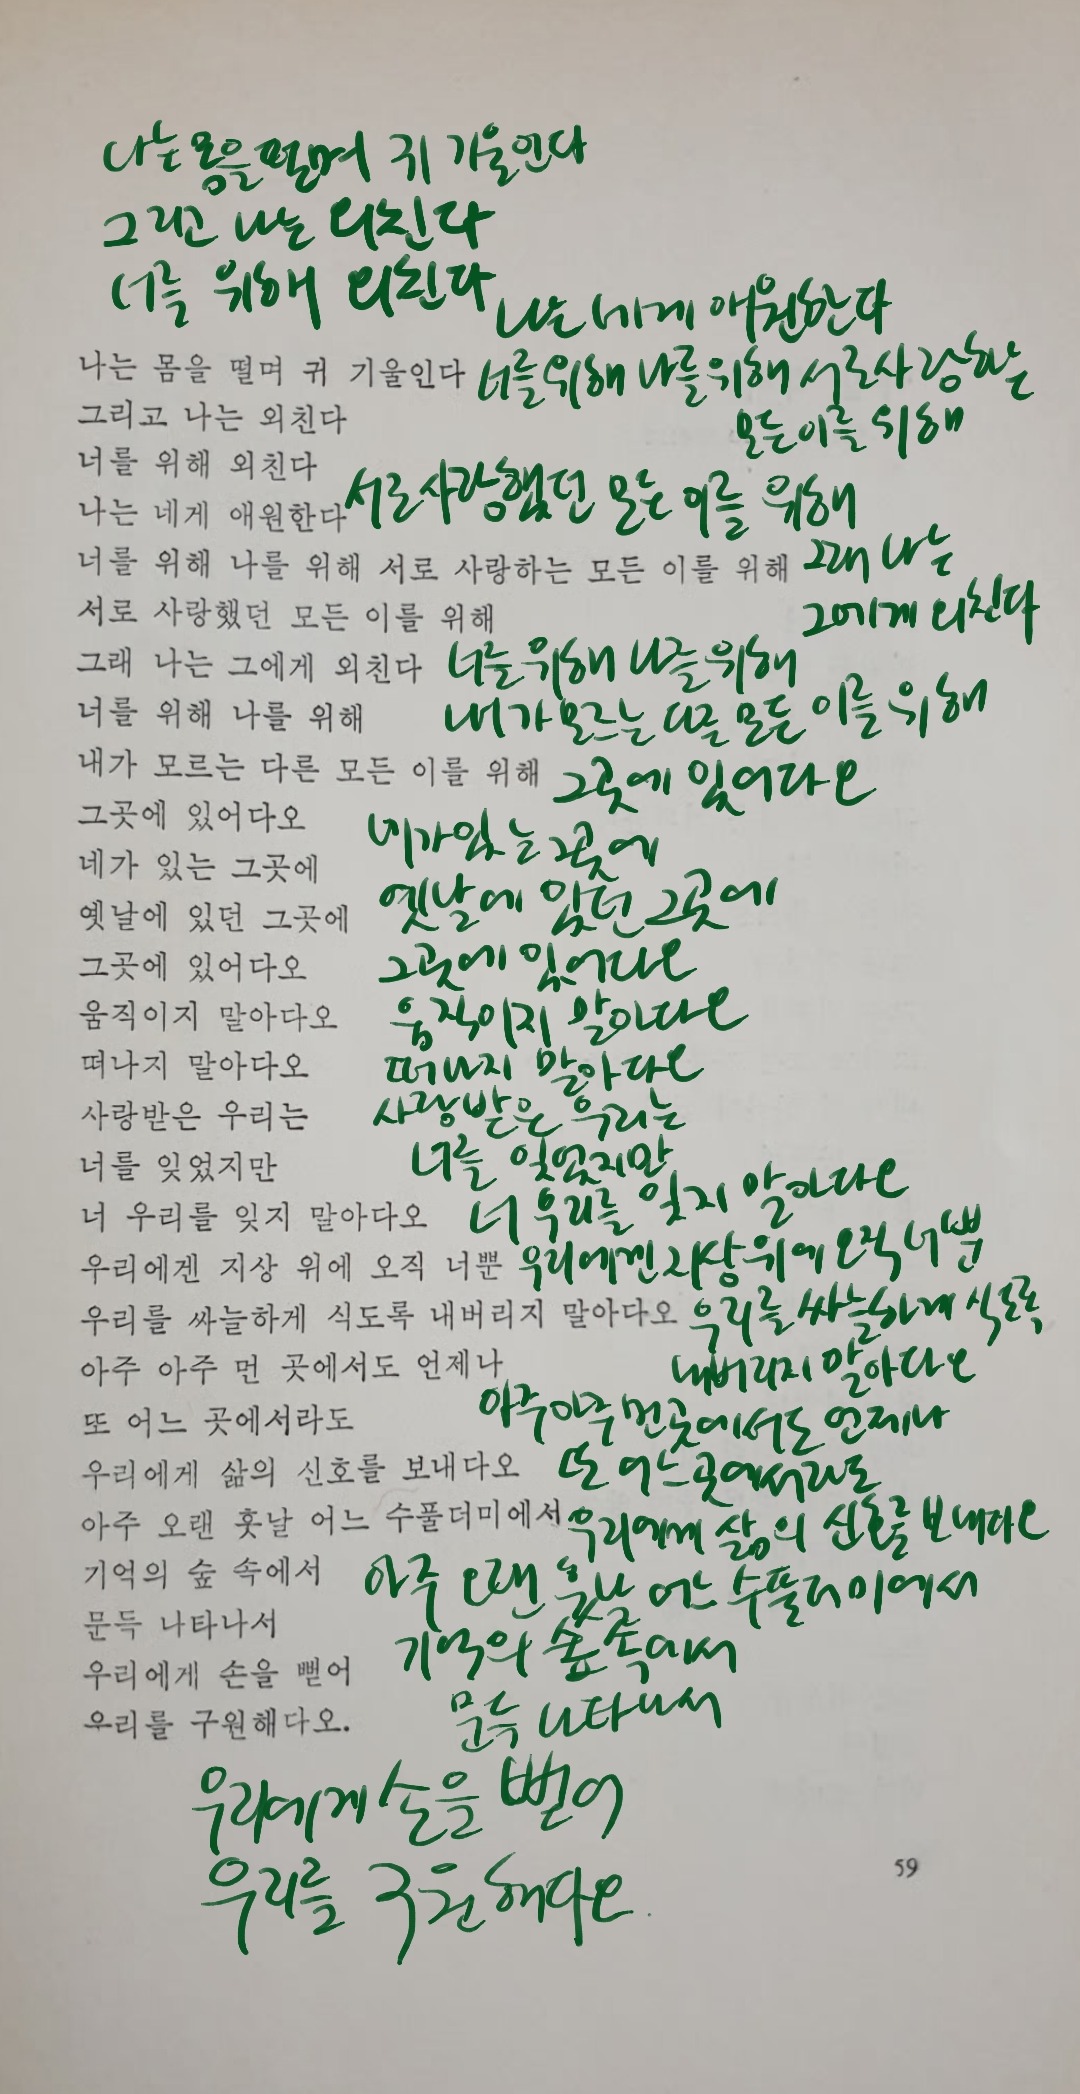 나는 몸을 떨며 귀 기울인다
그리고 나는 외친다
너를 위해 외친다
나는 네게 애원한다
나는 몸을 떨며 귀 기울인다
너를 위해 나를 위해 서로 사랑하는
그리고 나는 외친다
모든 이를 위해
너를 위해 외친다
서로 사랑했던 모든 이를 위해
나는 네게 애원한다
그래 나는
너를 위해 나를 위해 서로 사랑하는 모든 이를 위해
그에게 외친다
서로 사랑했던 모든 이를 위해
그래 나는 그에게 외친다
너를 위해 나를 위해
너를 위해 나를 위해
내가 모르는 다른 모든 이를 위해
내가 모르는 다른 모든 이를 위해
그곳에 있어다오
그곳에 있어다오
네가 있는 그곳에
네가 있는 그곳에
옛날에 있던 그곳에
옛날에 있던 그곳에
그곳에 있어다오
그곳에 있어다오
움직이지 말아다오
움직이지 말아다오
떠나지 말아다오
떠나지 말아다오
사랑받은 우리는
사랑받은 우리는
너를 잊었지만
너를 잊었지만
너 우리를 잊지 말아다오
너 우리를 잊지 말아다오
우리에겐 지상 위에 오직 너뿐
우리에겐 지상 위에 오직 너뿐
우리를 싸늘하게 식도록 내버리지 말아다오
우리를 싸늘하게 식도록
내버리지 말아다오
아주 아주 먼 곳에서도 언제나
아주 아주 먼 곳에서도 언제나
또 어느 곳에서라도
또 어느 곳에서라도
우리에게 삶의 신호를 보내다오
우리에게 삶의 신호를 보내다오
아주 오랜 훗날 어느 수풀더미에서
아주 오랜 훗날 어느 수풀더미에서
기억의 숲 속에서
기억의 숲 속에서
문득 나타나서
문득 나타나서
우리에게 손을 뻗어
우리를 구원해다오.
우리에게 손을 뻗어
우리를 구원해다오.
59